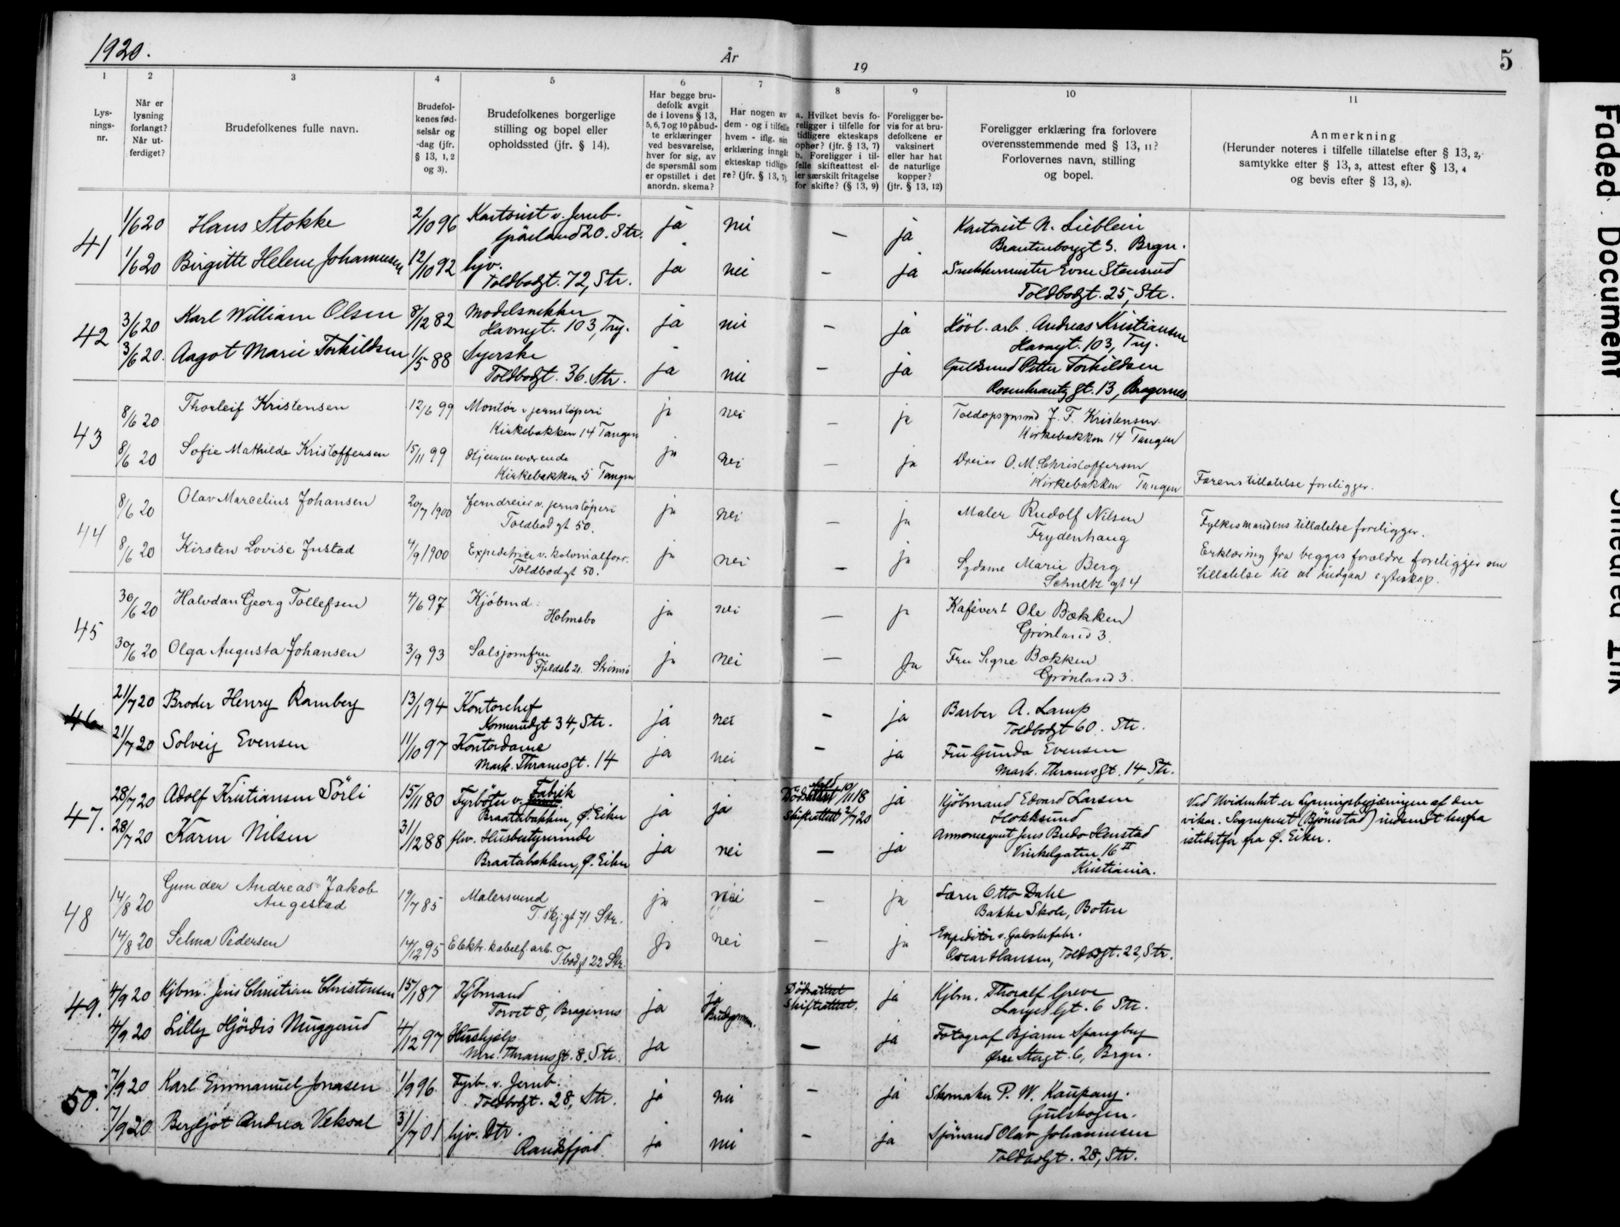 1920.
År
19
5
1
2
3
4
5
6
7
8
9
10
11
Lys-
nings-
nr.
Når er
lysning
forlangt?
Når ut-
ferdiget?
Brudefolkenes fulle navn.
Brudefol-
kenes fød-
selsår og
-dag (jfr.
§ 13, 1, 2
og 3).
Brudefolkenes borgerlige
stilling og bopel eller
opholdssted (jfr. § 14).
Har begge bru-
defolk avgit
de i lovens § 13,
5, 6, 7 og 10 påbud-
te erklæringer
ved besvarelse,
hver for sig, av
de spørsmål som
er opstillet i det
anordn. skema?
Har nogen av
dem - og i tilfelle
hvem - iflg. sin
erklæring inngått
ekteskap tidlige-
re? (jfr. § 13, 7)
a. Hvilket bevis fo-
religger i tilfelle for
tidligere ekteskaps
ophør? (jfr. § 13, 7)
b. Foreligger i til-
felle skifteattest el-
ler særskilt fritagelse
for skifte? (§ 13, 9)
Foreligger be-
vis for at bru-
defolkene er
vaksinert
eller har hat
de naturlige
kopper?
(jfr. § 13, 12)
Foreligger erklæring fra forlovere
overensstemmende med § 13, 11?
Forlovernes navn, stilling
og bopel.
Anmerkning
(Herunder noteres i tilfelle tillatelse efter § 13, 2,
samtykke efter § 13, 3, attest efter § 13, 4
og bevis efter § 13, 8).
41
1/6 20 Hans Stokke 2/10 96 Kontorist v. Jernb. ja nei — ja Kontorist N. Lieblein
Grönland 20. Str. Brgn.
1/6 20 Birgitte Helene Johannesen 12/10 92 hjv. ja nei — ja Snekkermester Stensrud
Toldbodgt. 72, Str. Toldbodgt. 25, Str.
42
3/6 20 Karl William Olsen 8/12 82 Modelsnekker ja nei — ja arb. Andreas Kristiansen
Havnegt. 103, Tng. Havnegt. 103, Tng.
3/6 20. Aagot Marie Torkildsen 1/5 88 Syerske ja nei — ja Petter Torkildsen
Toldbodgt. 36. Str. Rosenkrantzgt. 13, Bragernes
43
8/6 20 Thorleif Kristensen 12/6 99 Montör v jernstöperi ja nei — ja Toldopsynsmd J. F. Kristensen
Kirkebakken 14 Tangen Kirkebakken 14 Tangen
8/6 20 Sofie Mathilde Kristoffersen 15/11 99 Hjemmeværende ja nei — ja Dreier O. M. Christoffersen
Kirkebakken 5 Tangen Kirkebakken Tangen Farens tillatelse foreligger.
44
8/6 20 Olav Marcelius Johansen 20/7 1900 Jerndreier v. jernstöperi ja nei — ja Maler Rudolf Nilsen Fylkesmandens tillatelse foreligger.
Toldbodgt 50. Frydenhaug
8/6 20 Kirsten Lovise Justad 4/9 1900 Expeditrice v. kolonialforr. ja nei — ja Sydame Marie Berg Erklæring fra begges forældre foreligger om
Toldbodgt 50. Schultz gt 4 tillatelse til at indgaa egteskap.
45
30/6 20 Halvdan Georg Tollefsen 4/6 97 Kjöbmd. ja nei — ja Kafévert Ole Bækken
Holmsbo Grönland 3.
30/6 20 Olga Augusta Johansen 3/9 93 Salsjomfru ja nei — Ja Fru Signe Bækken
Strömsö Grönland 3.
46
21/7 20 Broder Henry Ramberg 13/1 94 Kontorchef ja nei — ja Barber A. Lamp
34, Str. Toldbodgt 60. Str.
21/7 20 Solveig Evensen 11/10 97 Kontordame ja nei — ja Fru Gunda Evensen
Mark. Thranesgt. 14 Mark. Thranesgt. 14, Str.
47.
28/7 20 Adolf Kristiansen Sörli 15/11 80 Fyrböter v. Fabrik ja ja 10/11 18 ja Kjöbmand Edvard Larsen
Braatabakken, Ø. Eiker Skifteattest 2/7 20 Hokksund
28/7 20 Karen Nilsen 31/12 88 Husbestyrerinde ja nei — ja Jens Bredo Henstad istedetfor fra Ø. Eiker.
Braatabakken, Ø. Eiker Vinkelgaten 16 II
Kristiania.
48
14/8 20 Gunder Andreas Jakob 19/7 85 Malersvend ja nei — ja Lærer Otto Dahl
Angestad T. skj. gt 71 Str. Bakke Skole, Botne
14/8 20 Selma Pedersen 14/12 95 Elektr. kabelf arb. Ja nei — ja Expeditör v.
T. bodgt 22 Str. Oscar Hansen, Toldbodgt. 22, Str.
49.
4/9 20 Kjbm. Jens Christian Christensen 15/1 87 Kjöbmand ja ja Dödsattest ja Kjbm. Thoralf Greve
Torvet 8, Bragernes Brudgommen. Skifteattest. gt. 6 Str.
4/9 20 Lilly Hjördis Muggerud 4/12 97 Hushjelp ja — ja Fotograf Bjarne Spangberg
Mrc. Thranesgt. 8. Str. Övre Storgt. 6, Brgn.
50.
7/9 20 Karl Emmanuel Jonasen 1/9 96 Fyrb. v. Jernb. ja nei — ja Skomaker P. W. Kaupang.
Toldbodgt. 28, Str. Gulskogen.
7/9 20 Bergljot Andrea Veksal 31/7 01 hjv. Str. ja nei — ja Sjömand Olav Johannesen
Randsfjord Toldbodgt. 28, Str.
Faded Document
Smeared Ink